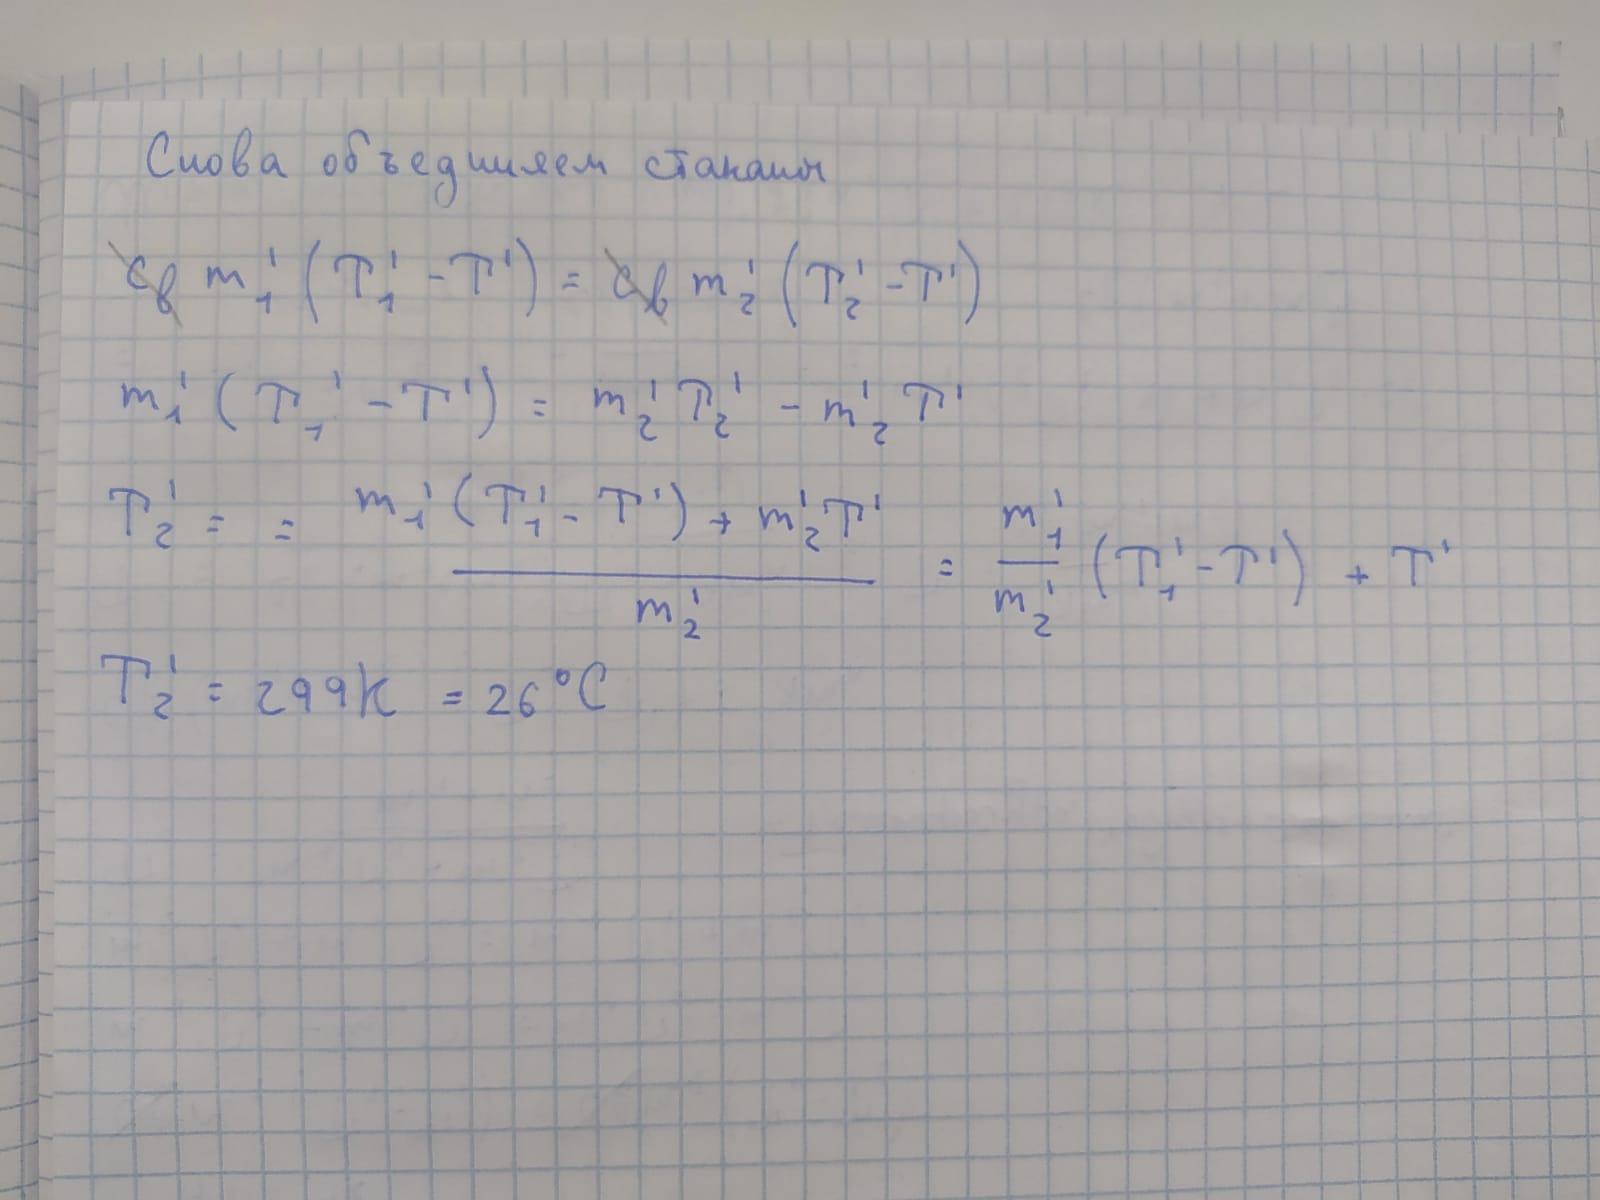 Снова объединяем стаканы
cв m₁' (T₁' - T') = cв m₂' (T₂' - T')
m₁' (T₁' - T') = m₂' T₂' - m₂' T'
T₂' = = (m₁' (T₁' - T') + m₂' T') / m₂' = m₁' / m₂' (T₁' - T') + T'
T₂' = 299K = 26°C